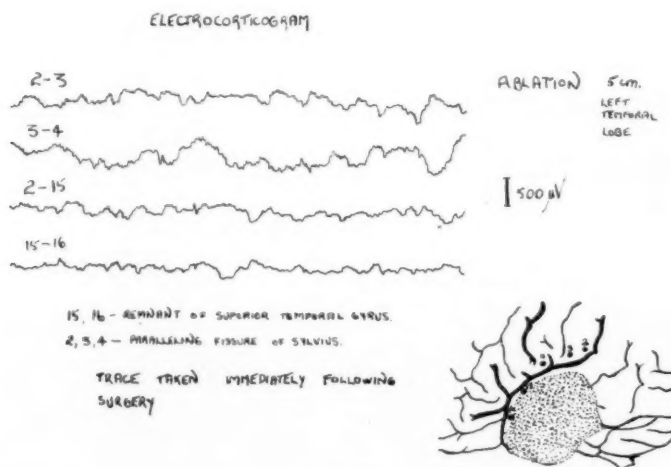 ELECTROCORTICOGRAM
2-3
ABLATION 5 cm.
LEFT
TEMPORAL
LOBE
3-4
500 μV
2-15
15-16
15, 16 - REMNANT OF SUPERIOR TEMPORAL GYRUS.
2, 3, 4 - PARALLELING FISSURE OF SYLVIUS.
TRACE TAKEN IMMEDIATELY FOLLOWING
SURGERY